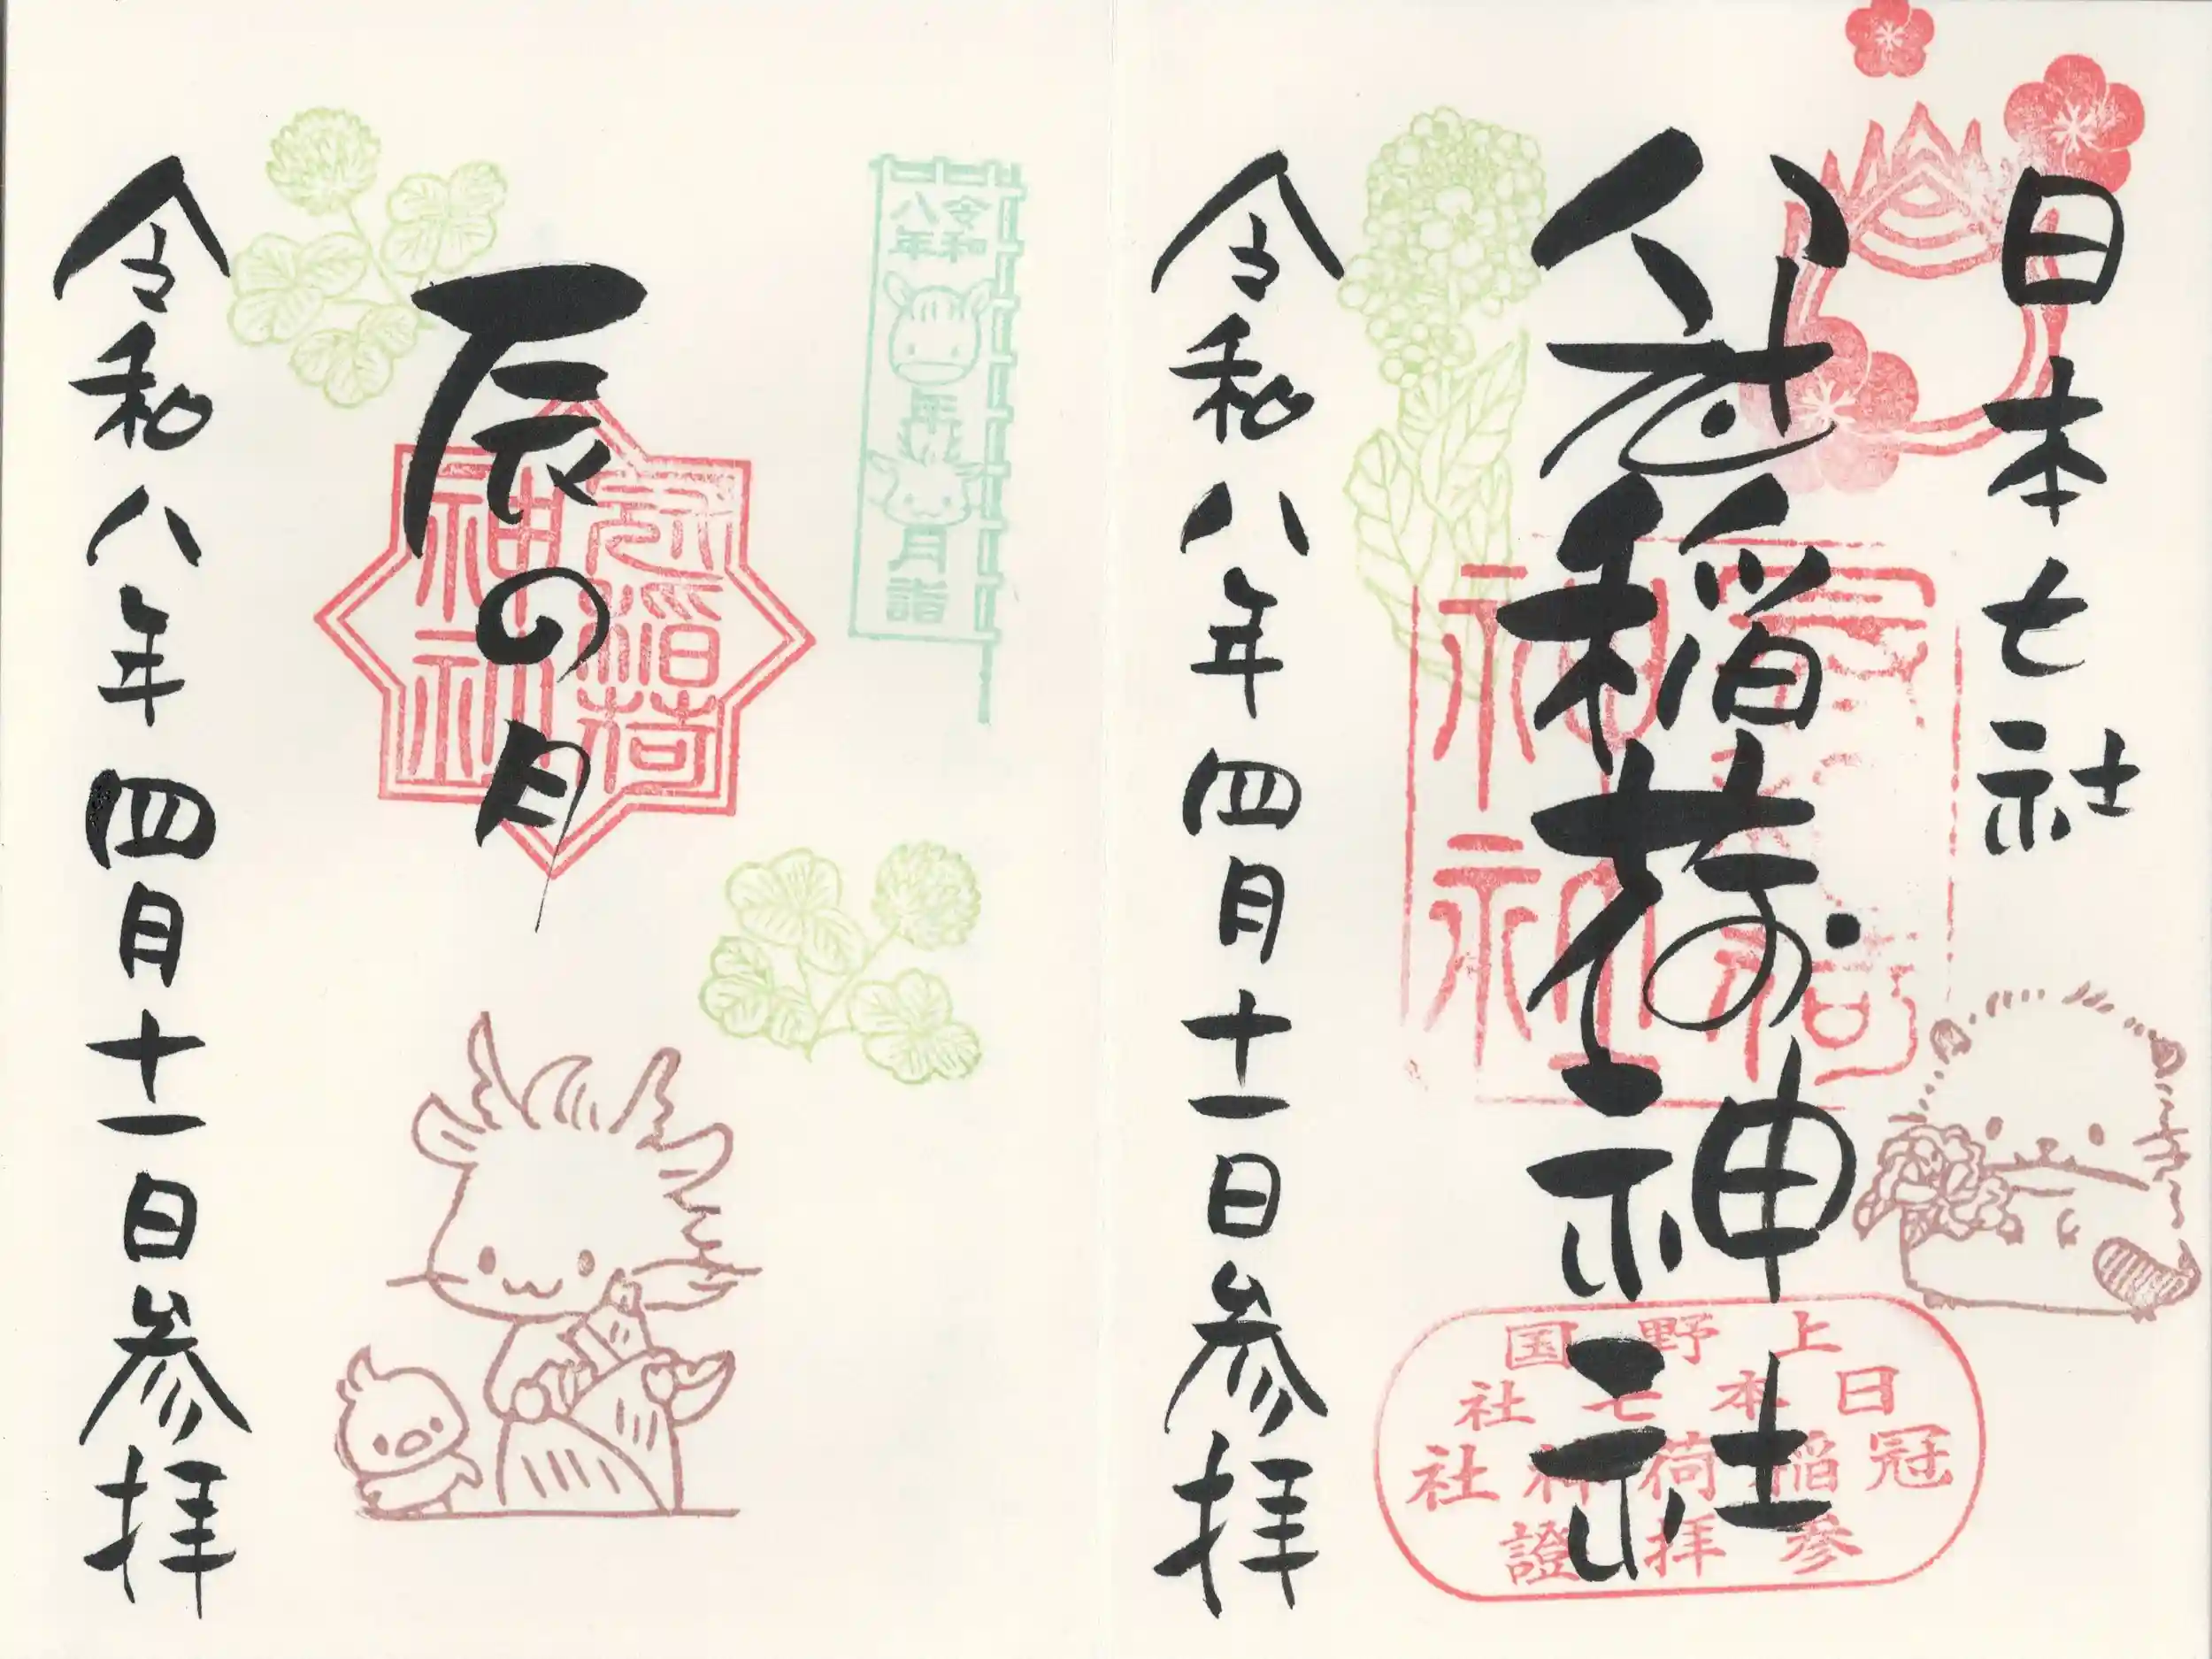 日本七社
冠稲荷神社
冠稲荷
神社
上野国
日本七社
冠稲荷神社
参拝證
令和八年四月十一日参拝
令和
八年
年
月詣
辰の月
冠稲荷
神社
令和八年四月十一日参拝